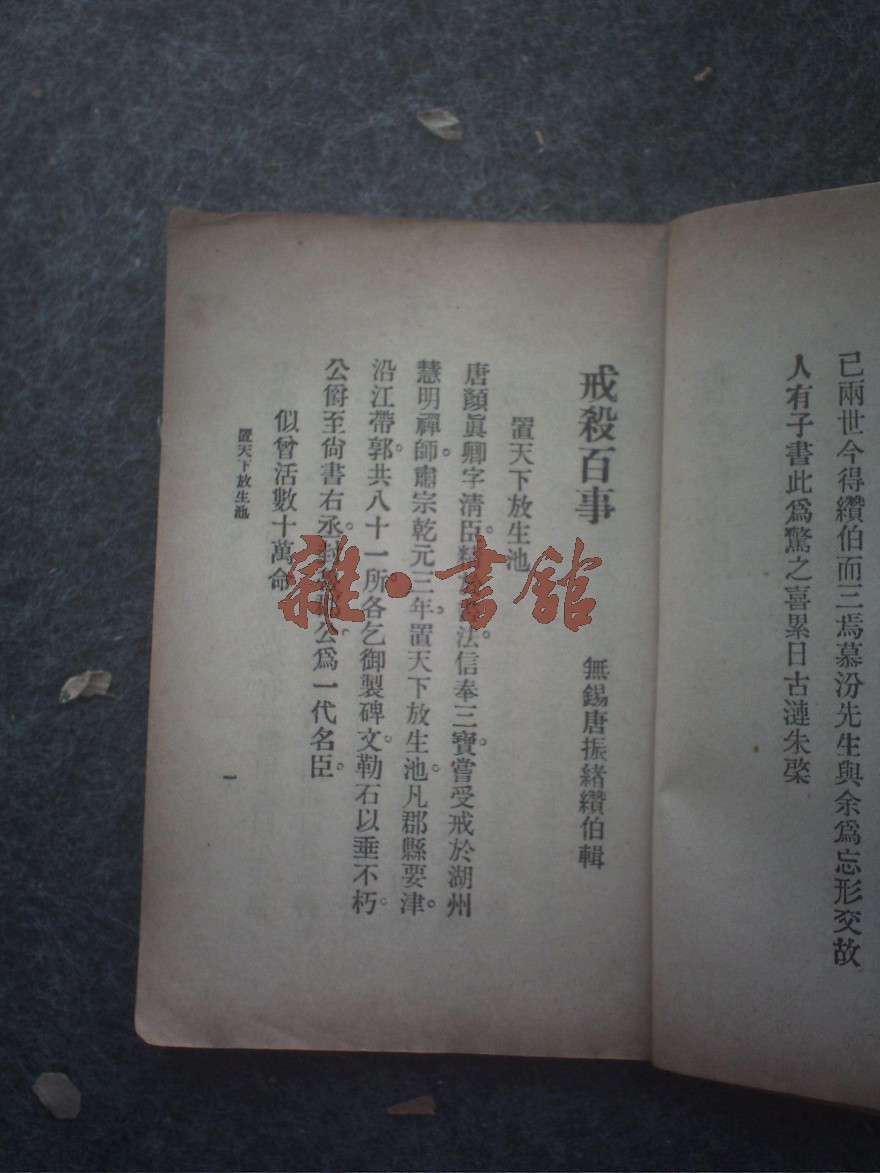 已兩世今得纘伯而三焉慕汾先生與余爲忘形交故
人有子書此爲驚之喜累日古漣朱
戒殺百事
無錫唐振緒纘伯輯
置天下放生池
唐顏眞卿字清臣。法。信奉三寶。嘗受戒於湖州
慧明禪師。肅宗乾元三年。置天下放生池。凡郡縣要津。
沿江帶郭。共八十一所。各乞御製碑文。勒石以垂不朽。
公爵至尙書右丞。公。爲一代名臣。
似曾活數十萬命
置天下放生池
一
雜·書館